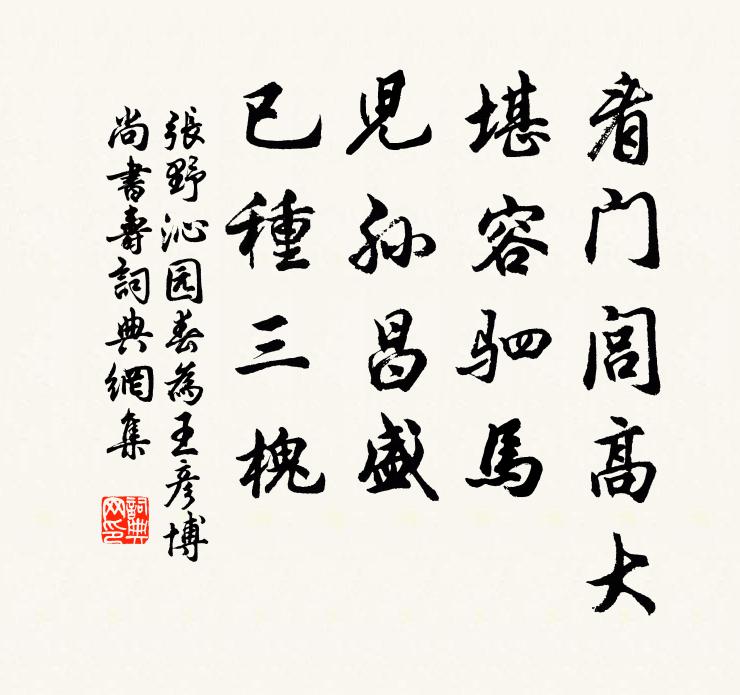 看门闾高大
堪容驷馬
児孙昌盛
已種三槐
張野沁园春為王彦博
尚書壽詞典網集
詞典
网印